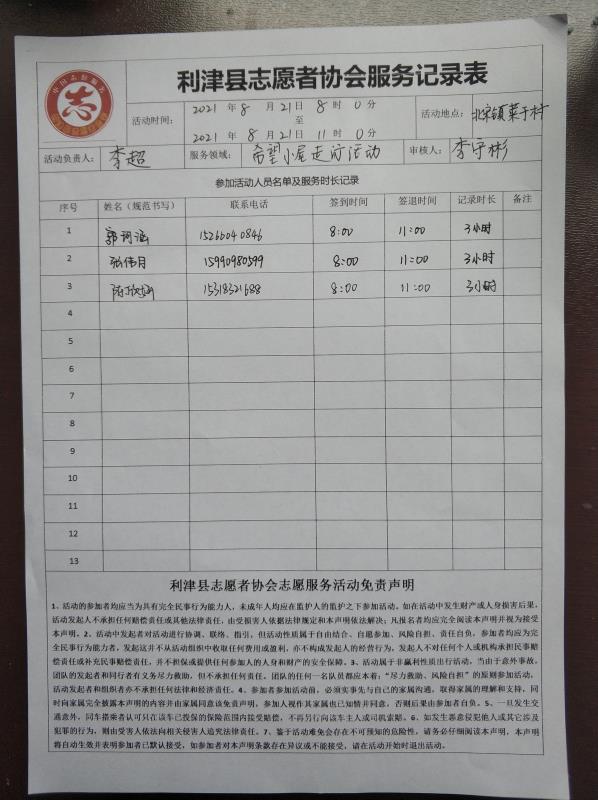 中国志愿服务
志
利津县志愿者协会服务记录表
活动时间： 2021 年 8 月 21 日 8 时 0 分
至
2021 年 8 月 21 日 11 时 0 分
活动地点： 北宋镇菜于村
活动负责人： 李超 服务领域： 希望小屋走访活动 审核人： 李守彬
参加活动人员名单及服务时长记录
序号 姓名（规范书写） 联系电话 签到时间 签退时间 记录时长 备注
1 郭珂涵 15266040846 8:00 11:00 3小时
2 张伟月 15990980599 8:00 11:00 3小时
3 陈欣涵 15318321688 8:00 11:00 3小时
4
5
6
7
8
9
10
11
12
13
利津县志愿者协会志愿服务活动免责声明
1、活动的参加者均应当为具有完全民事行为能力人，未成年人均应在监护人的监护之下参加活动。如在活动中发生财产或人身损害后果，
活动发起人不承担任何赔偿责任或其他法律责任，由受损害人依据法律规定和本声明依法解决；凡报名者均应完全阅读本声明并视为接受
本声明。2、活动中发起者对活动进行协调、联络、指引，但活动性质属于自由结合、自愿参加、风险自担、责任自负，参加者均应为完
全民事行为能力者，发起这并不从活动组织中收取任何费用或盈利，亦不构成发起人的经营行为，发起人不对任何个人或机构承担民事赔
偿责任或补充民事赔偿责任，并不担保或提供任何参加人的人身和财产的安全保障。3、活动属于非赢利性质出行活动，当由于意外事故，
团队的发起者和同行者有义务尽力救助，但不承担任何责任。团队的任何一名队员都应本着：“尽力救助、风险自担”的原则参加活动，
活动发起者和组织者亦不承担任何法律和经济责任。4、参加者参加活动前，必须实事先与自己的家属沟通，取得家属的理解和支持，同
时向家属完全披露本声明的内容并由家属同意该免责声明，参加人视作其家属也已知情并同意，否则后果由参加者自负。5、一旦发生交
通意外，同车搭乘者认可只在该车已投保的保险范围内接受赔偿，不再另行向该车主人或司机索赔。6、如发生恶意侵犯他人或其它涉及
犯罪的行为，则由受害人依法向相关侵害人追究法律责任。7、鉴于活动难免会存在不可预知的危险性，请务必仔细阅读本声明，本声明
将自动生效并表明参加者已默认接受，如参加者对本声明条款存在异议或不能接受，请在活动开始时退出活动。